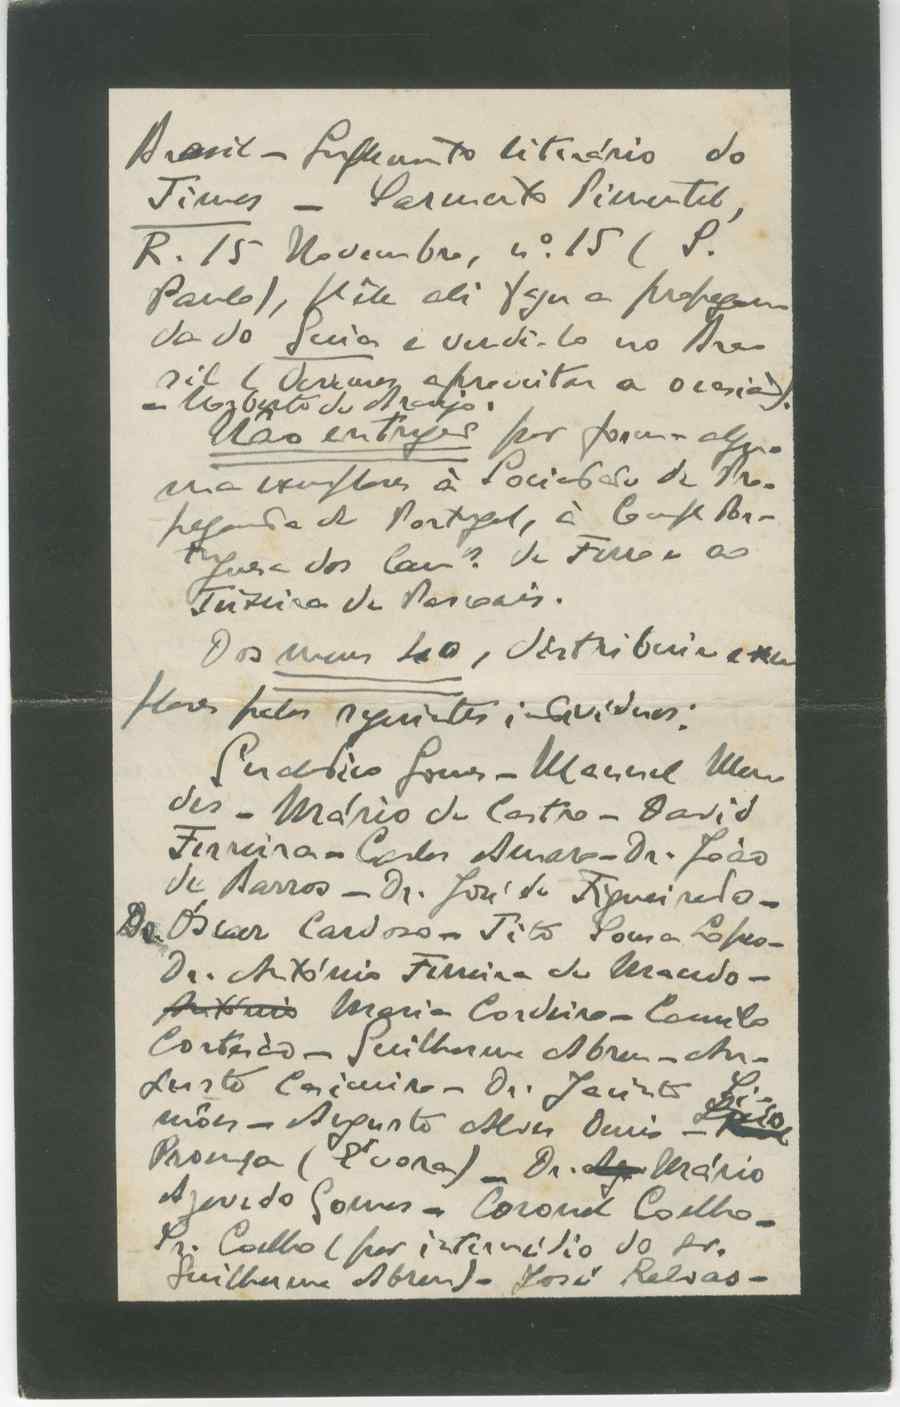 Brasil – Suplemento literário do
Times – Sarmento Pimentel,
R. 15 Novembro, nº. 15 (S.
Paulo), p.ª ele ali fazer a propagan
da do Guia e vendê-lo no Bra-
sil (Devemos aproveitar a ocasião).
– Norberto de Araújo.
Não entregar por forma algu-
ma exemplares à Sociedade de Pro-
paganda de Portugal, à Comp. Por-
tuguesa dos Cam.ºs de Ferro e ao
Teixeira de Pascoais.
Dos meus 40, distribuir exem
plares pelos seguintes indivíduos:
Gomes – Manuel Men
des – Mário de Castro – David
Ferreira – Carlos Amaro – Dr. João
de Barros – Dr. José de Figueiredo –
Dr. Óscar Cardoso – Tito Sousa Lopes –
Dr. António Ferreira de Macedo –
António Maria Cordeiro – Camilo
Cortesão – Guilherme Abreu – Au-
gusto Casimiro – Dr. Jacinto Si-
mões – Augusto Alves Diniz –
Proença (Évora) – Dr. Mário
Azevedo Gomes – Coronel Coelho –
Sr. Coelho (por intermédio do sr.
Guilherme Abreu) – José Relvas –